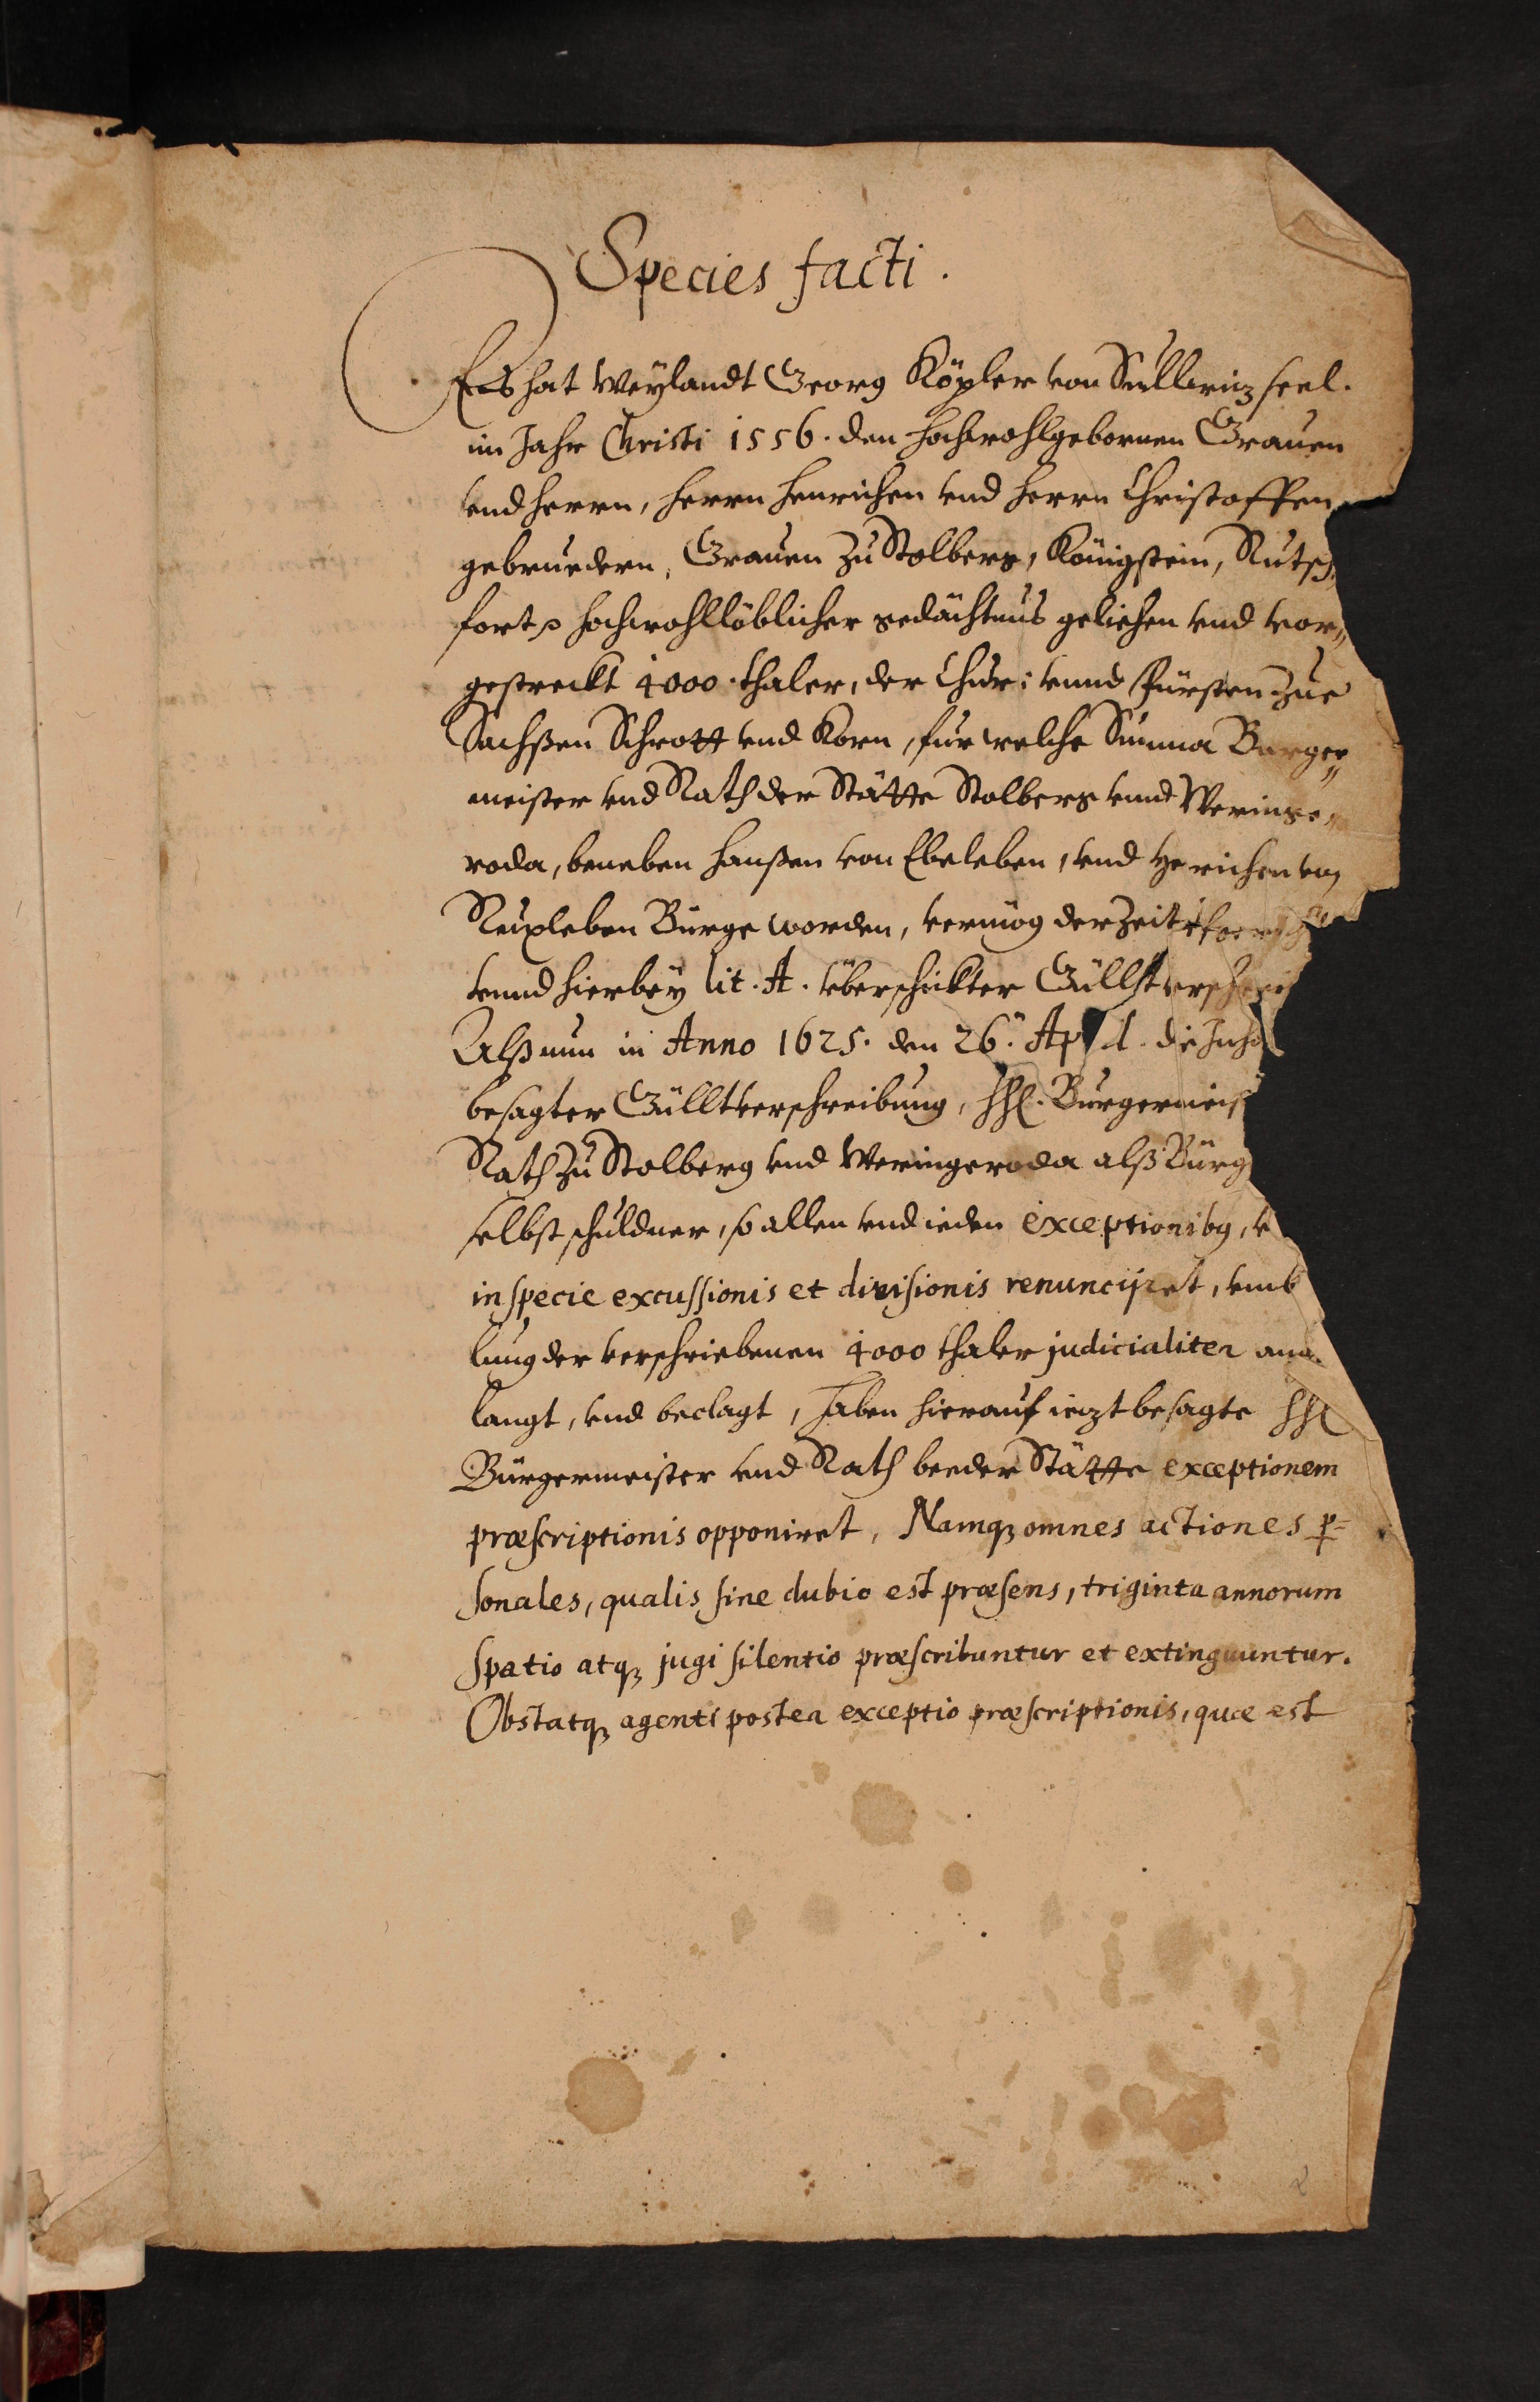 Species facti.
Es hat Weylandt Georg Köpler von Sullwiz seel.
im Jahr Christi 1556. den hochwohlgebornen Grauen
vnd Herrn, Herrn Henrichen vnd Herrn Christoffen
gebruedern, Grauen zu Stolberg, Königstein, Rutsch
fort hochwohllöblicher gedächtnus geliehen vnd vor„
gestreckt 4000. thaler, der Chur: vnnd Fürsten zue
Sachßen Schrott vnd Korn, fur welche Summa Burger„
meister vnd Rath der Stätte Stolberg vnnd Weringe„
roda, beneben Hanßen von Ebeleben, vnd Henrichen von
Ruxleben Bürge worden, vermög der Zeit
vnnd hierbey lit. A. überschickter Güllt
Alß nun in Anno 1625. den 26. Ap il. die Inha
besagter Gülltverschreibung, HH. Burgermeis
Rath zu Stolberg vnd Weringeroda alß Bürg
selbst schuldner, so allen vnd ieden exceptionibq, v
in specie excussionis et divisionis renuncijret, vmb
lung der verschriebenen 4000 thaler judicialiter
langt, vnd beclagt, haben hierauf iezt besagte HH
Bürgermeister vnd Rath beeder Stätte exceptionem
præscriptionis opponiret, Namq; omnes actiones p=
sonales, qualis sine dubio est præsens, triginta annorum
spatio atq; jugi silentio præscribuntur et extinguuntur.
Obstatq; agenti postea exceptio præscriptionis, quæ est